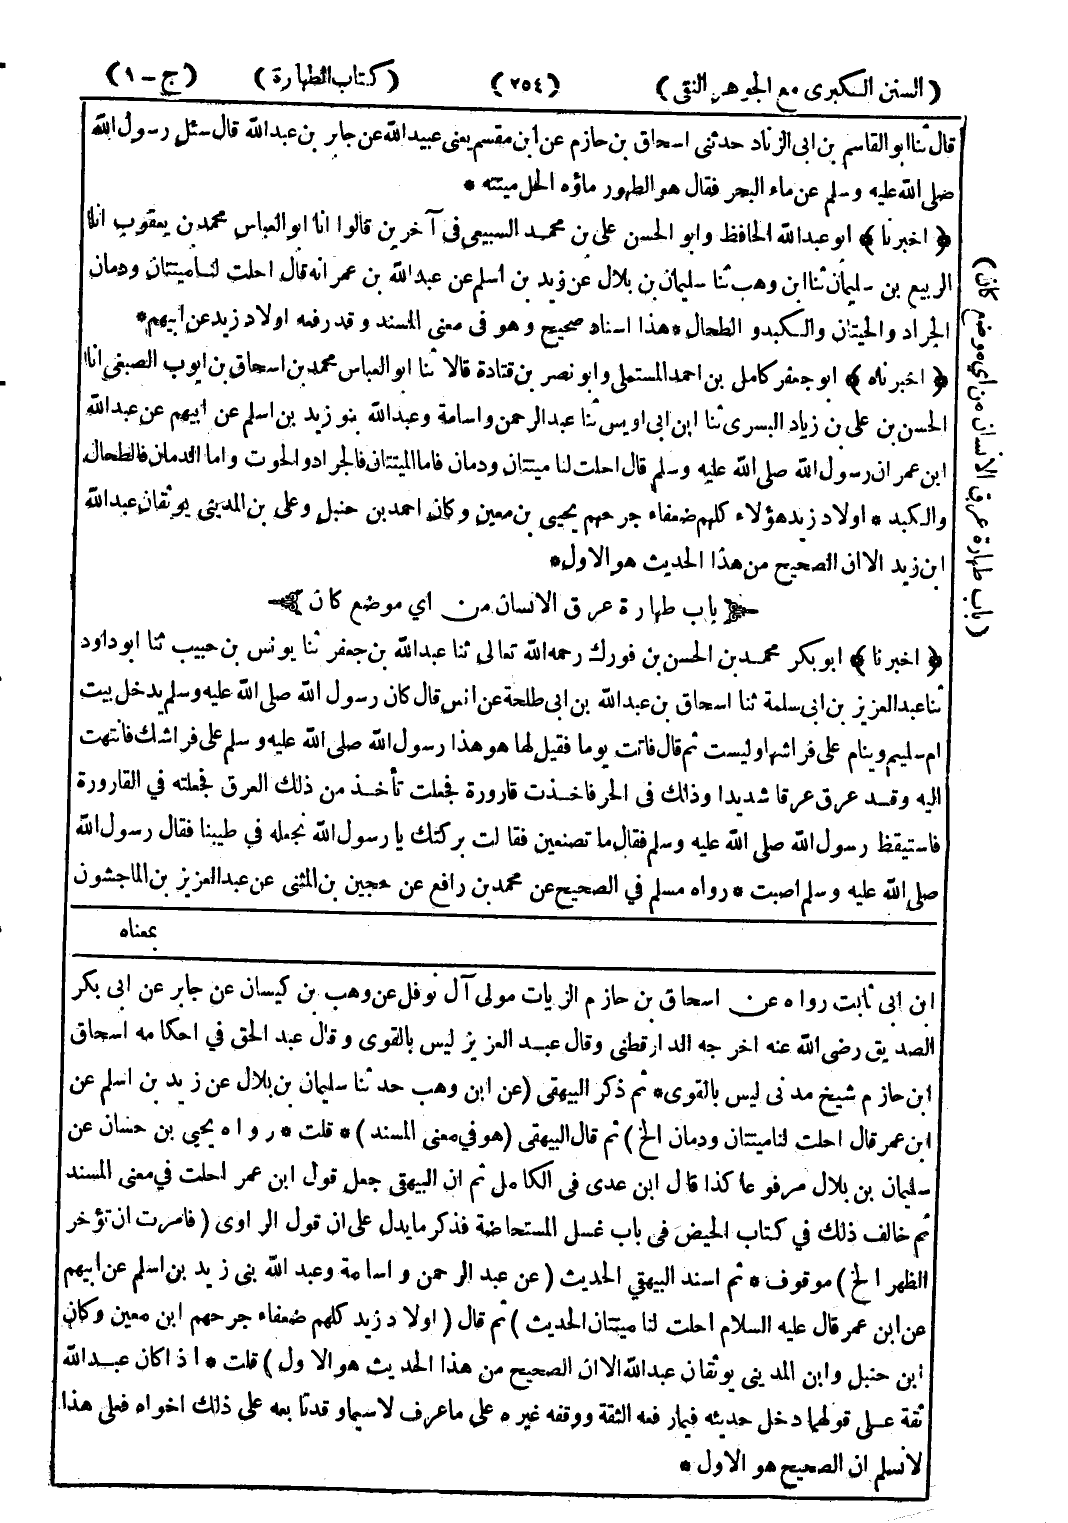 (السنن الكبرى مع الجوهر النقى) (٢٥٤) (كتاب الطهارة) (ج-١)
قال ثنا ابو القاسم بن ابى الزناد حدثنى اسحاق بن حازم عن ابن مقسم يعنى عبيد الله عن جابر بن عبد الله قال سئل رسول الله
صلى الله عليه وسلم عن ماء البحر فقال هو الطهور ماؤه الحل ميتته *
﴿اخبرنا﴾ ابو عبد الله الحافظ وابو الحسن على بن محمد السبيعى فى آخرين قالوا انا ابو العباس محمد بن يعقوب انا
الربيع بن سليمان ثنا ابن وهب ثنا سليمان بن بلال عن زيد بن اسلم عن عبد الله بن عمر انه قال احلت لنا ميتتان ودمان
الجراد والحيتان والكبد و الطحال * هذا اسناد صحيح وهو فى معنى المسند وقد رفعه اولاد زيد عن ابيهم *
﴿اخبرناه﴾ ابو جعفر كامل بن احمد المستملى وابو نصر بن قتادة قالا ثنا ابو العباس محمد بن اسحاق بن ايوب الصبغى انا
الحسن بن على بن زياد السرى ثنا ابن ابى اويس ثنا عبد الرحمن واسامة وعبد الله بنو زيد بن اسلم عن ابيهم عن عبد الله
ابن عمر ان رسول الله صلى الله عليه وسلم قال احلت لنا ميتتان ودمان فاما الميتتان فالجراد والحوت واما الدمان فالطحال
والكبد * اولاد زيد هؤلاء كلهم ضعفاء جرحهم يحيى بن معين وكان احمد بن حنبل وعلى بن المدينى يوثقان عبد الله
ابن زيد الا ان الصحيح من هذا الحديث هو الاول *
باب طهارة عرق الانسان من اي موضع كان
﴿اخبرنا﴾ ابو بكر محمد بن الحسن بن فورك رحمه الله تعالى ثنا عبد الله بن جعفر ثنا يونس بن حبيب ثنا ابو داود
ثنا عبد العزيز بن ابى سلمة ثنا اسحاق بن عبد الله بن ابى طلحة عن انس قال كان رسول الله صلى الله عليه وسلم يدخل بيت
ام سليم وينام على فراشها وليست ثم قال فاتت يوما فقيل لها هو هذا رسول الله صلى الله عليه وسلم على فراشك فانتهت
اليه وقد عرق عرقا شديدا وذلك فى الحر فاخذت قارورة فجعلت تأخذ من ذلك العرق فجعلته في القارورة
فاستيقظ رسول الله صلى الله عليه وسلم فقال ما تصنعين فقالت بركتك يا رسول الله نجعله في طيبنا فقال رسول الله
صلى الله عليه وسلم اصبت * رواه مسلم في الصحيح عن محمد بن رافع عن حجين بن المثنى عن عبد العزيز بن الماجشون
بمعناه
(باب طهارة عرق الانسان من اي موضع كان)
ابن ابى ثابت رواه عن اسحاق بن حازم الزيات مولى آل نوفل عن وهب بن كيسان عن جابر عن ابى بكر
الصديق رضى الله عنه اخرجه الدارقطنى وقال عبد العزيز ليس بالقوى وقال عبد الحق في احكامه اسحاق
ابن حازم شيخ مدنى ليس بالقوى * ثم ذكر البيهقى (عن ابن وهب حدثنا سليمان بن بلال عن زيد بن اسلم عن
ابن عمر قال احلت لنا ميتتان ودمان الخ) ثم قال البيهقى (هو في معنى المسند) * قلت * رواه يحيى بن حسان عن
سليمان بن بلال مرفوعا كذا قال ابن عدى فى الكامل ثم ان البيهقى جعل قول ابن عمر احلت في معنى المسند
ثم خالف ذلك في كتاب الحيض فى باب غسل المستحاضة فذكر ما يدل على ان قول الراوى (فامرت ان تؤخر
الظهر الخ) موقوف * ثم اسند البيهقى الحديث (عن عبد الرحمن واسامة وعبد الله بنى زيد بن اسلم عن ابيهم
عن ابن عمر قال عليه السلام احلت لنا ميتتان الحديث) ثم قال (اولاد زيد كلهم ضعفاء جرحهم ابن معين وكان
ابن حنبل وابن المدينى يوثقان عبد الله الا ان الصحيح من هذا الحديث هو الاول) قلت * اذا كان عبد الله
ثقة على قولهما دخل حديثه فيما رفعه الثقة ووقفه غيره على ما عرف لاسيما وقد تابعه على ذلك اخواه فعلى هذا
لا نسلم ان الصحيح هو الاول *